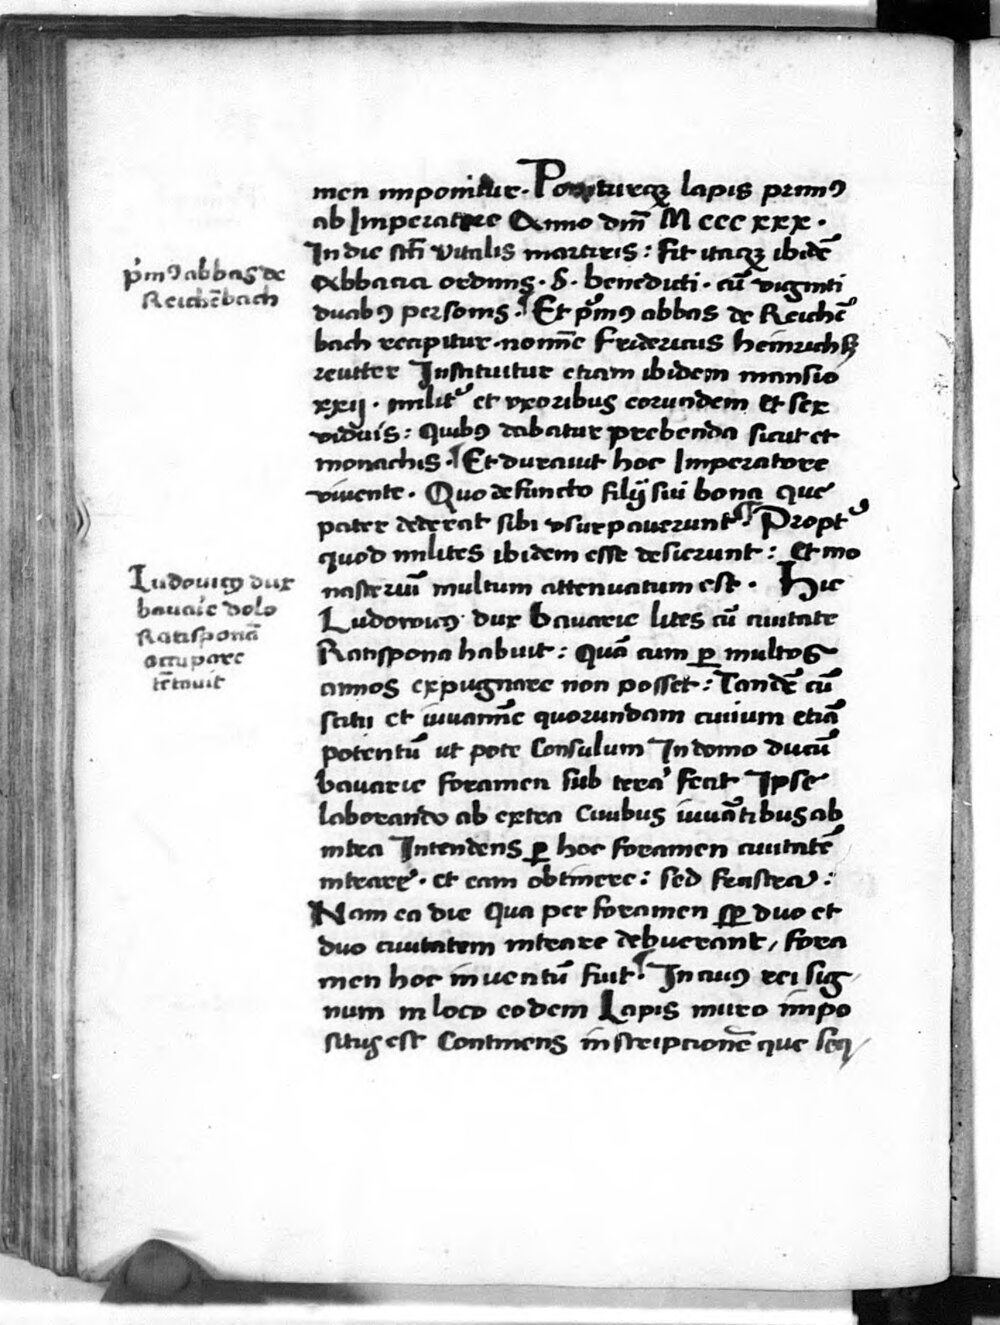 men imponitur. Poniturqꝫ lapis primꝯ
ab Imperatore Anno dm̄ M ccc xxx.
In die sc̄ti vitalis martiris: fit itaqꝫ ibidē
Abbacia ordinis. S. benedicti. cū viginti
duabꝯ personis. Et p̄mꝯ abbas de Reichē
bach recipitur. nomīe Fridericus heinrichß
reutter Instituitur etiam ibidem mansio
xxij. milit᷒ et vxoribus eorundem et sex
viduis: Quibꝯ dabatur prebenda sicut et
monachis. Et durauit hoc Imperatore
viuente. Quo defuncto filij sui bona que
pater dederat sibi vsurpauerunt Propt᷒
quod milites ibidem esse desierunt: Et mo
nasteriū multum attenuatum est. Hic
Ludowicꝯ dux Bauarie lites cū ciuitate
Ratispona habuit: Quā cum ꝑ multos
annos expugnare non posset: Tandē cū
scitu et iuuamīe quorundam ciuium etiā
potentū ut pote Consulum In domo ducū
bauarie foramen sub terra fecit Ipse
laborando ab extra Ciuibus iuuātibus ab
intra Intendens ꝑ hoc foramen ciuitatē
intrare. et eam obtinere: sed frustra:
Nam ea die Qua per foramen sꝑ duo et
duo ciuitatem intrare debuerant, fora
men hoc inuentū fuit. In cuiꝯ rei sig
num in loco eodem Lapis muro impo
situs est Continens inscripcionē que seq
p̄mꝯ abbas de
Reichēbach
Ludouicꝯ dux
bauarie dolo
Ratisponā
occupare
tētauit